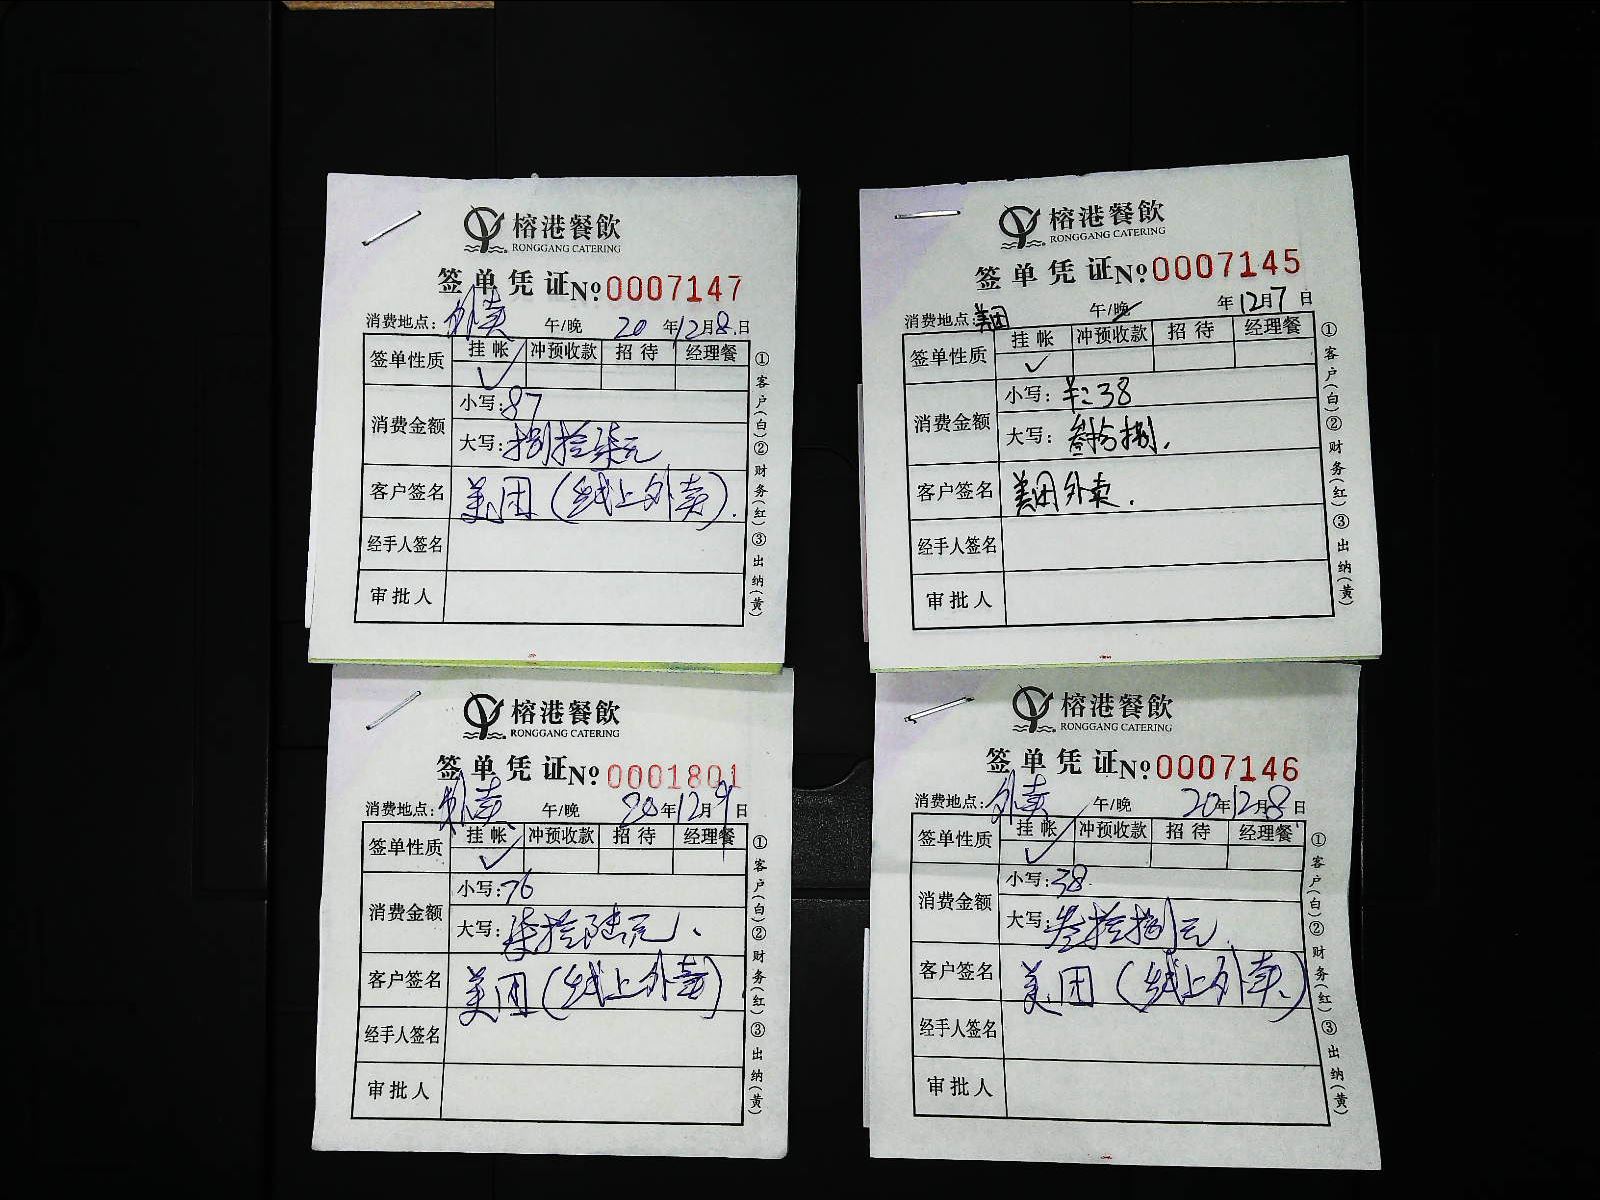 榕港餐飲
RONGGANG CATERING
签单凭证 No 0007147
消费地点: 外卖 午/晚 20年12月8日
签单性质 挂帐 冲预收款 招待 经理餐
✓
消费金额 小写: 87
大写: 捌拾柒元
客户签名 美团(线上外卖).
经手人签名
审批人
①客户(白)②财务(红)③出纳(黄)
榕港餐飲
RONGGANG CATERING
签单凭证 No 0007145
消费地点: 美团 午/晚 年12月7日
签单性质 挂帐 冲预收款 招待 经理餐
✓
消费金额 小写: ¥:38
大写: 叁拾捌.
客户签名 美团外卖.
经手人签名
审批人
①客户(白)②财务(红)③出纳(黄)
榕港餐飲
RONGGANG CATERING
签单凭证 No 0001801
消费地点: 外卖 午/晚 20年12月9日
签单性质 挂帐 冲预收款 招待 经理餐
✓
消费金额 小写: 76
大写: 柒拾陆元、
客户签名 美团(线上外卖)
经手人签名
审批人
①客户(白)②财务(红)③出纳(黄)
榕港餐飲
RONGGANG CATERING
签单凭证 No 0007146
消费地点: 外卖 午/晚 20年12月8日
签单性质 挂帐 冲预收款 招待 经理餐
✓
消费金额 小写: 38
大写: 叁拾捌元
客户签名 美团(线上外卖)
经手人签名
审批人
①客户(白)②财务(红)③出纳(黄)